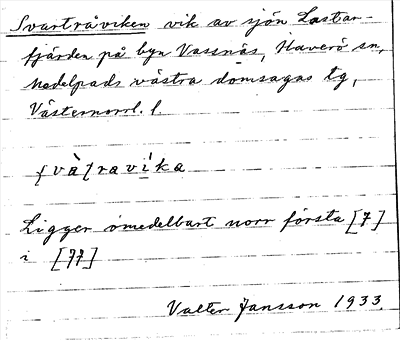 Svartråviken vik av sjön Lastar-
fjärden på byn Vassnäs, Haverö sn,
Medelpads västra domsagas tg,
Västernorrl. l.
Ligger omedelbart norr första [7]
i [77]
Valter Jansson 1933.